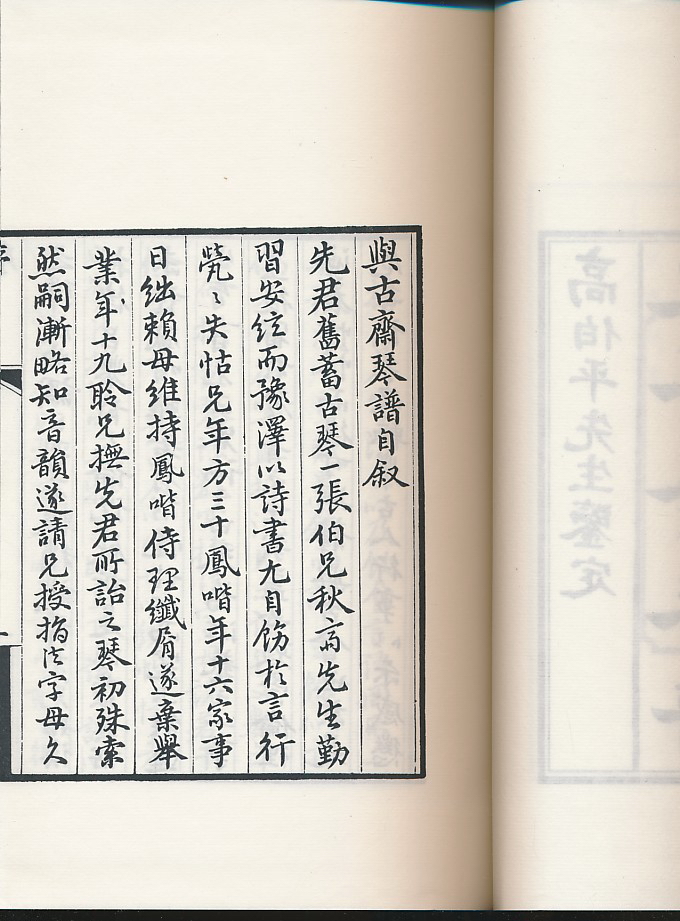 與古齋琴譜自叙
先君舊蓄古琴一張伯兄秋齋先生勤
習安絃而豫澤以詩書尤自飭於言行
煢〻失怙兄年方三十鳳喈年十六家事
日絀賴母維持鳳喈侍理纖屑遂棄舉
業年十九聆兄撫先君所詒之琴初殊索
然嗣漸略知音韻遂請兄授指法字母久
高伯平先生鑒定